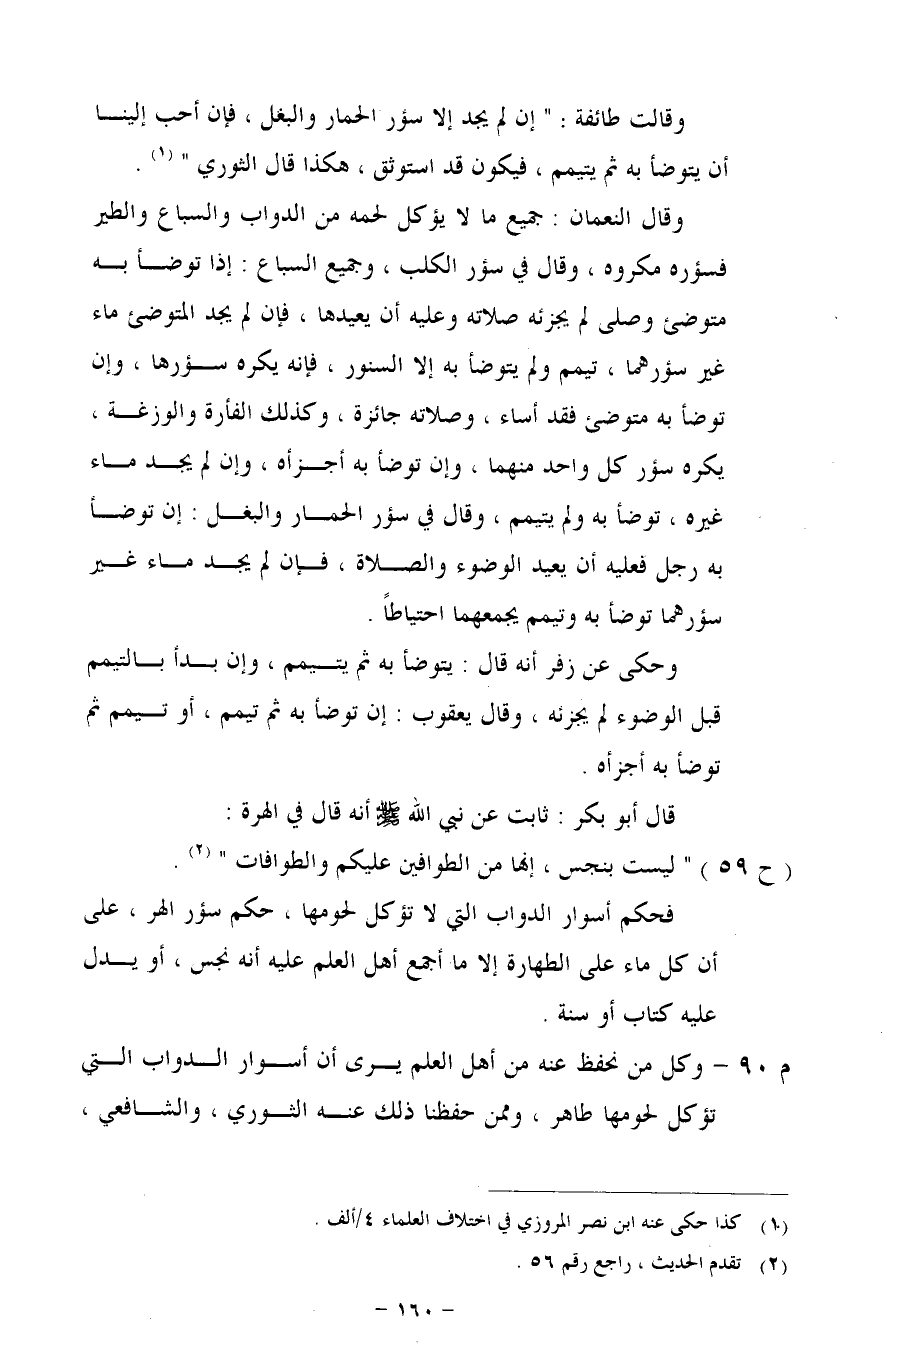 وقالت طائفة : " إن لم يجد إلا سؤر الحمار والبغل ، فإن أحب إلينا
أن يتوضأ به ثم يتيمم ، فيكون قد استوثق ، هكذا قال الثوري " (١) .
وقال النعمان : جميع ما لا يؤكل لحمه من الدواب والسباع والطير
فسؤره مكروه ، وقال في سؤر الكلب ، وجميع السباع : إذا توضأ به
متوضئ وصلى لم يجزئه صلاته وعليه أن يعيدها ، فإن لم يجد المتوضئ ماء
غير سؤرهما ، تيمم ولم يتوضأ به إلا السنور ، فإنه يكره سؤرها ، وإن
توضأ به متوضئ فقد أساء ، وصلاته جائزة ، وكذلك الفأرة والوزغة ،
يكره سؤر كل واحد منهما ، وإن توضأ به أجزأه ، وإن لم يجد ماء
غيره ، توضأ به ولم يتيمم ، وقال في سؤر الحمار والبغل : إن توضأ
به رجل فعليه أن يعيد الوضوء والصلاة ، فإن لم يجد ماء غير
سؤرهما توضأ به وتيمم يجمعهما احتياطاً .
وحكى عن زفر أنه قال : يتوضأ به ثم يتيمم ، وإن بدأ بالتيمم
قبل الوضوء لم يجزئه ، وقال يعقوب : إن توضأ به ثم تيمم ، أو تيمم ثم
توضأ به أجزأه .
قال أبو بكر : ثابت عن نبي الله ﷺ أنه قال في الهرة :
( ح ٥٩ ) " ليست بنجس ، إنها من الطوافين عليكم والطوافات " (٢) .
فحكم أسوار الدواب التي لا تؤكل لحومها ، حكم سؤر الهر ، على
أن كل ماء على الطهارة إلا ما أجمع أهل العلم عليه أنه نجس ، أو يدل
عليه كتاب أو سنة .
م ٩٠ – وكل من نحفظ عنه من أهل العلم يرى أن أسوار الدواب التي
تؤكل لحومها طاهر ، وممن حفظنا ذلك عنه الثوري ، والشافعي ،
(١) كذا حكى عنه ابن نصر المروزي في اختلاف العلماء ٤/ألف .
(٢) تقدم الحديث ، راجع رقم ٥٦ .
– ١٦٠ –